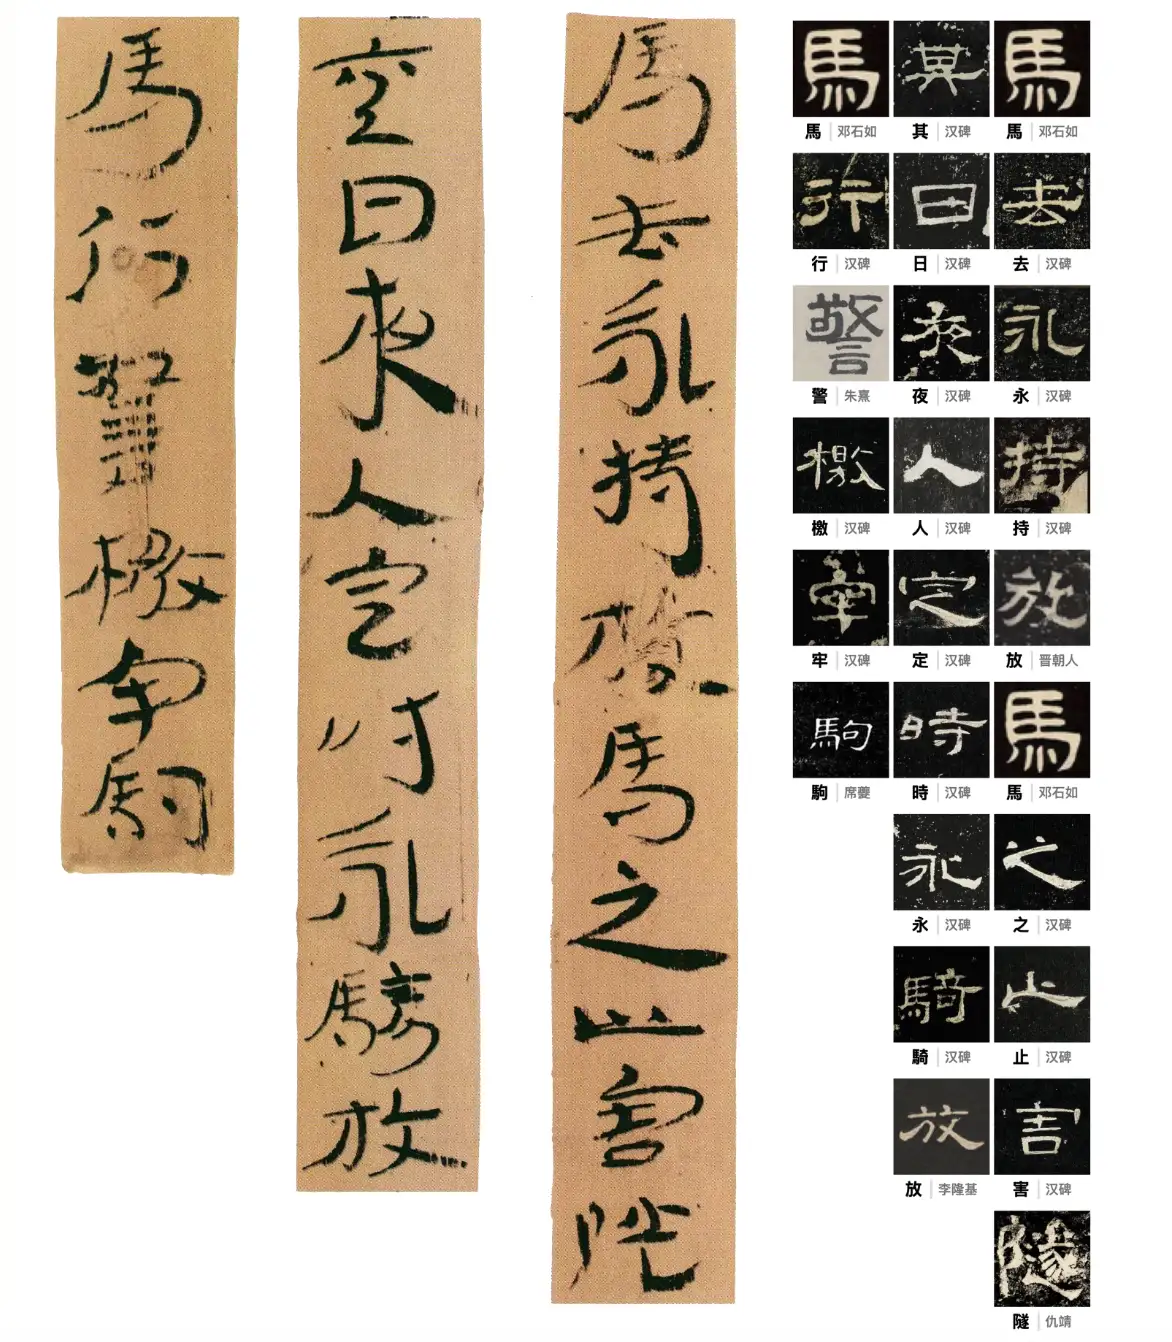 馬去永持放馬之止害隧
其日夜人定時永騎放
馬行警檄牢駒
馬 邓石如 其 汉碑 馬 邓石如
行 汉碑 日 汉碑 去 汉碑
警 朱熹 夜 汉碑 永 汉碑
檄 汉碑 人 汉碑 持 汉碑
牢 汉碑 定 汉碑 放 晋朝人
駒 席夔 時 汉碑 馬 邓石如
永 汉碑 之 汉碑
騎 汉碑 止 汉碑
放 李隆基 害 汉碑
隧 仇靖